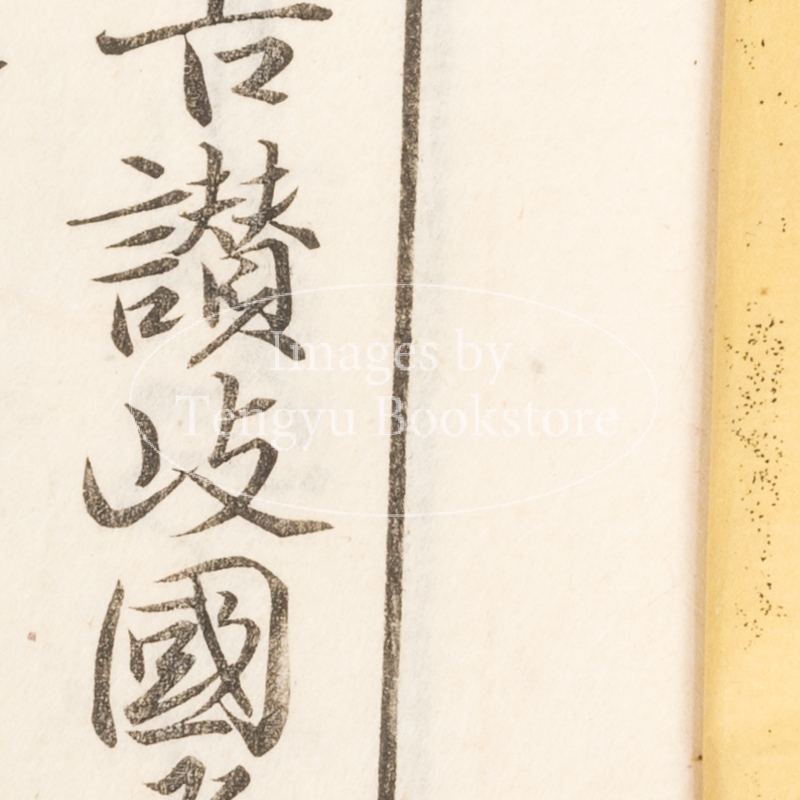 讃岐國
Images by
Tengyu Bookstore